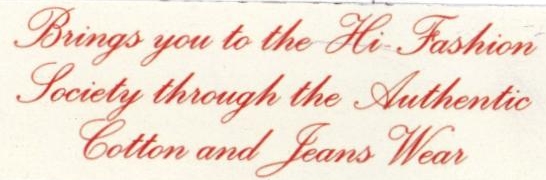 Brings you to the Hi-Fashion
Society through the Authentic
Cotton and Jeans Wear